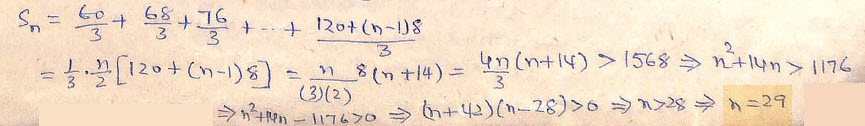 Sₙ = 60/3 + 68/3 + 76/3 + ... + 120+(n-1)8/3
= 1/3 · n/2 [120+(n-1)8] = n/(3)(2) 8(n+14) = 4n/3 (n+14) > 1568 ⇒ n²+14n > 1176
⇒ n²+14n - 1176>0 ⇒ (n+42)(n-28)>0 ⇒ n>28 ⇒ n=29